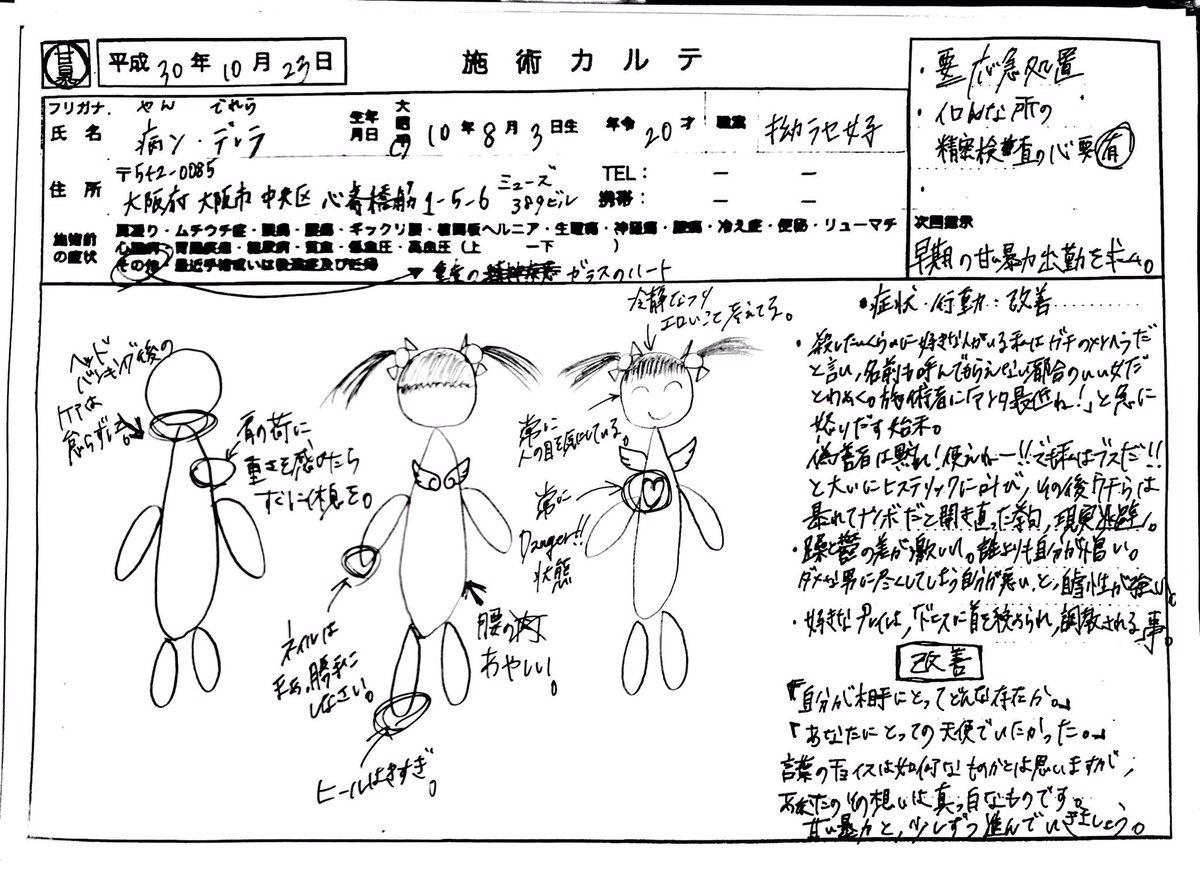 甘暴
平成30年10月23日
施術カルテ
フリガナ やん でれら
氏名 病ン・デレラ
生年月日 大 昭 平 10年8月3日生
年令 20才
職業 拗ラセ女子
住所 〒542-0085
大阪府大阪市中央区心斎橋筋1-5-6 ミューズ389ビル
TEL: － －
携帯: － －
施術前の症状
肩凝り・ムチウチ症・腰痛・膝痛・ギックリ腰・椎間板ヘルニア・生理痛・神経痛・頭痛・冷え症・便秘・リューマチ
心臓病・胃腸疾患・糖尿病・貧血・低血圧・高血圧(上 ー下 )
その他・最近手術或いは後遺症及び妊娠
重度の精神疾患 ガラスのハート
・要応急処置
・イロんな所の
精密検査の必要有
・
次回指示
早期の甘い暴力出勤を求ム。
ヘッド
バンキング後の
ケアは
怠らずに。
肩の荷に
重さを感じたら
すぐに休息を。
ネイルは
まぁ、勝手に
しなさい。
ヒールはきすぎ。
腰の肉
あやしい。
冷静なフリ
エロいこと考えてる。
常に
人の目を気にしている。
常に
Danger!!
状態
●症状・行動：改善
・殺したいくらいに好きな人がいる私はガチのメンヘラだ
と言い、名前も呼んでもらえない都合のいい女だ
とわめく。施術者に「アンタ最低ね!」と急に
怒りだす始末。
偽善者は黙れ!使えねー!!でも私はブスだ!!
と大いにヒステリックに叫び、その後ウチらは
暴れてナンボだと開き直った挙句、現実逃避。
・躁と鬱の差が激しい。誰よりも自分が脆い。
ダメな男に尽くしてしまう自分が悪い、と、自虐性が強い。
・好きなプレイは、「ドエスに首を絞められ、調教される事。
改善
「自分が相手にとってどんな存在か。」
「あなたにとっての天使でいたかった。」
言葉のチョイスは如何なものかとは思いますが、
あなたのその想いは真っ白なものです。
甘い暴力と、少しずつ進んでいきましょう。